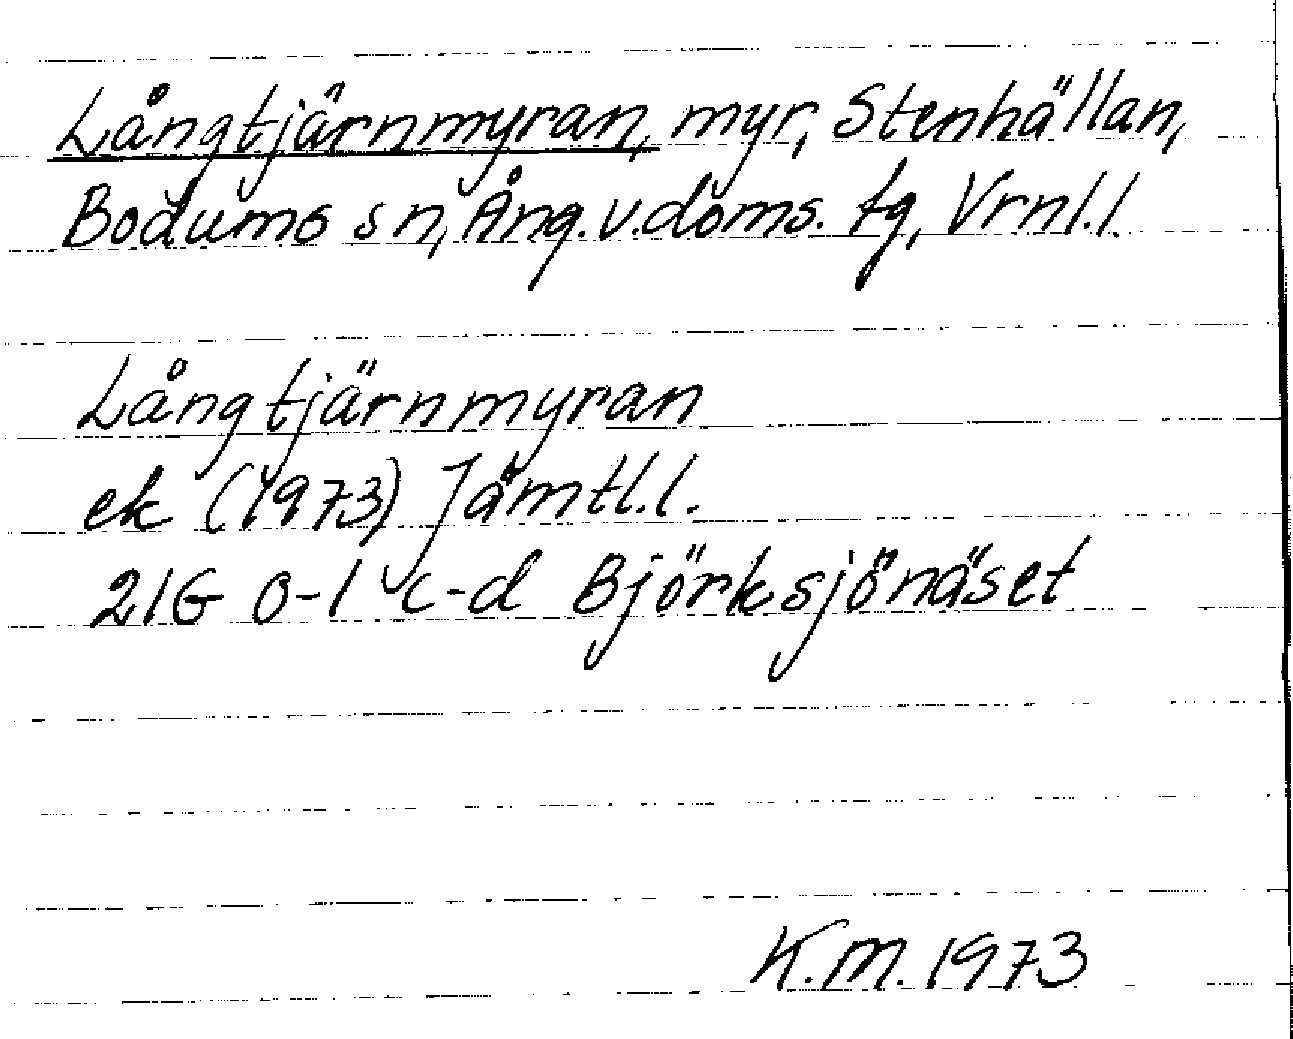 Långtjärnmyran, myr, Stenhällan,
Bodums sn, Ång. v. doms. tg, Vrnl.l.
Långtjärnmyran
ek (1973) Jämtl.l.
21G 0-1 c-d Björksjönäset
K.M. 1973